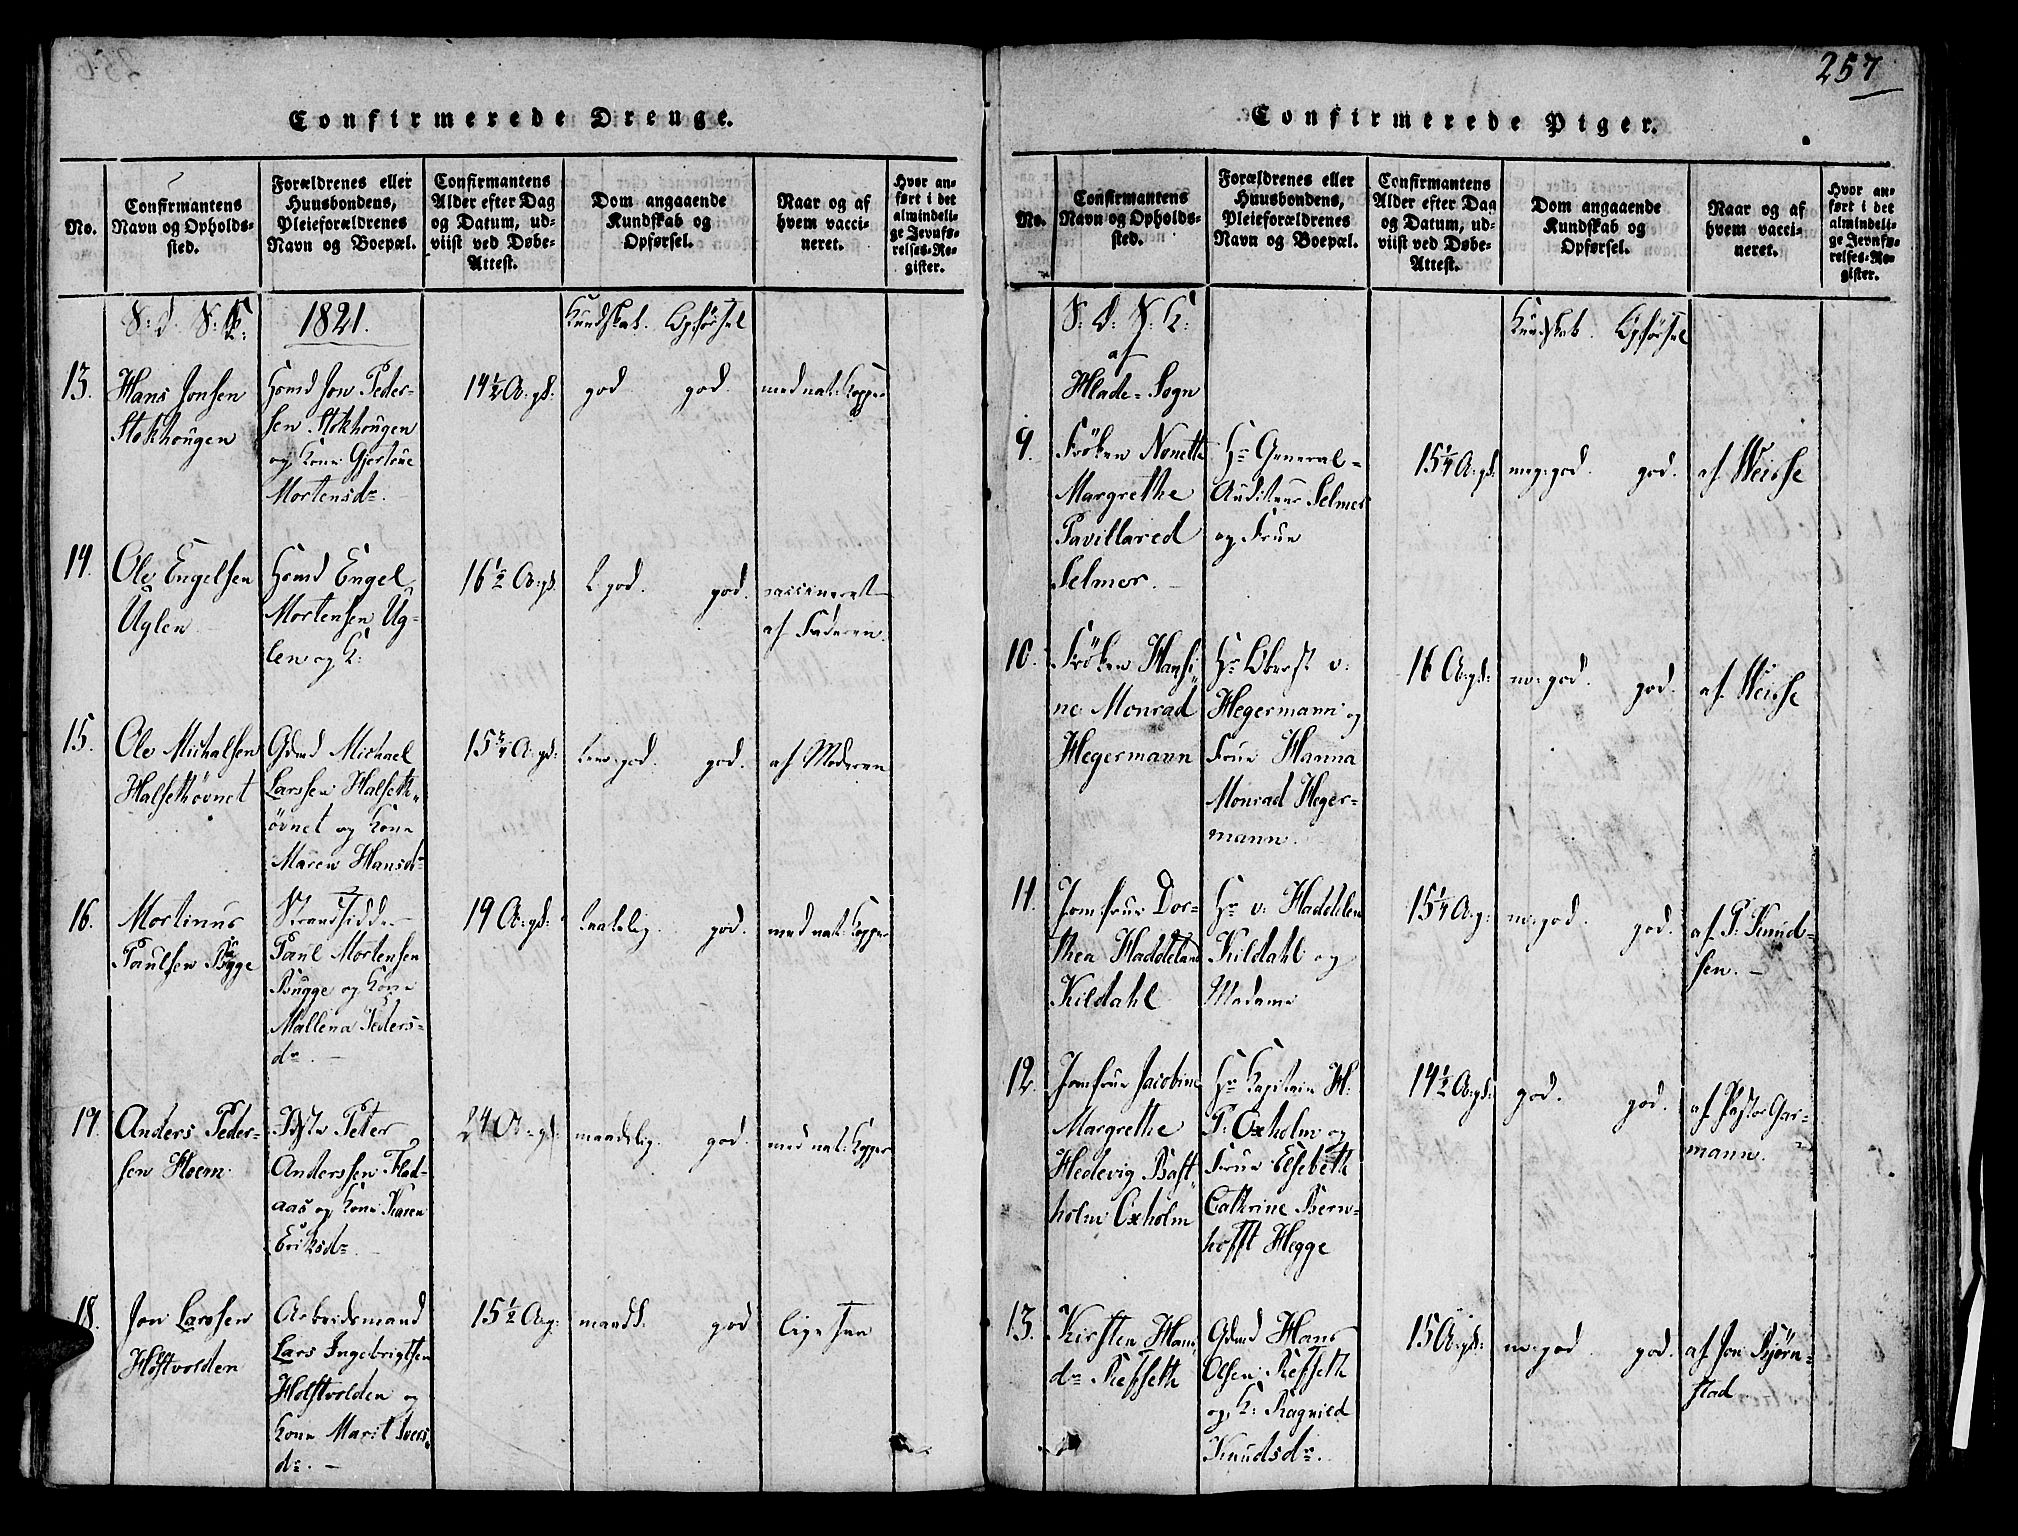 257
Confirmerede Drenge.
No.
Confirmantens
Navn og Opholds-
sted.
Forældrenes eller
Huusbondens,
Pleieforældrenes
Navn og Boepæl.
Confirmantens
Alder efter Dag
og Datum, ud-
viist ved Døbe-
Attest.
Dom angaaende
Kundskab og
Opførsel.
Naar og af
hvem vacci-
neret.
Hvor an-
ført i det
almindeli-
ge Jevnfø-
relses-Re-
gister.
S: d. S: K:
1821.
Kundskab. Opførsel
13.
Hans Jonsen
Stokhougen
Huusmd Jon Peder-
sen Stokhougen
og Kone Gjertrue
Mortensdr.
14½ A: gl:
god god.
med nat: Kopper
14.
Ole Engelsen
Uglen
Huusmd Engel
Mortensen Ug-
len og K:
16½ A: gl.
t. god. god.
vaccineret
af Faderen.
15.
Ole Michalsen
Halsethøvnet
Gdmd Michael
Larssen Halseth-
øvnet og Kone
Maren Hansdr
15¾ A: gl:
god. god.
af Moderen
16.
Mortinus
Paulsen Bygge
Strandsidder
Paul Mortensen
Bugge og Kone
Mallena Peders-
dr. –
19 A: gl:
maadelig. god.
med nat: Kopper
17.
Anders Peder-
sen Hoem.
Peter
Anderssen Flad-
aas og Kone Karen
Eriksdr.
24 A: gl:
maadelig. god.
med nat: Kopper
18.
Jon Larssen
Holstvolden
Arbeidsmand
Lars Ingebrigtsen
Holstvolden og
Kone Marit Ivers-
dr. –
15½ A: g:
maadl. god
ligesaa
Confirmerede Piger.
No.
Confirmantens
Navn og Opholds-
sted.
Forældrenes eller
Huusbondens,
Pleieforældrenes
Navn og Boepæl.
Confirmantens
Alder efter Dag
og Datum, ud-
viist ved Døbe-
Attest.
Dom angaaende
Kundskab og
Opførsel.
Naar og af
hvem vacci-
neret.
Hvor an-
ført i det
almindeli-
ge Jevnfø-
relses-Re-
gister.
S: d: S: K:
af
Hlade-Sogn
Kundskab. Opførsel
9.
Frøken Nonette
Margrethe
Pavillared
Selmer.
Hr General-
Auditeur Selmer
og Frue
15¼ A: gl:
meg: god god.
af Weisse
10.
Frøken Hansi-
ne Monrad
Hegermann
Hr Oberst v:
Hegermann og
Frue Hanna
Monrad Heger-
mann.
16 A: gl:
m: god. god.
af Weisse
11.
Jomfrue Dor-
thea Haddeland
Kildahl
Hr v: Haddelen
Kildahl og
Madame
15¼ A: g:
m: god. god.
af P. Knud-
sen. –
12.
Jomfrue Jacobine
Margrethe
Hedevig Bast-
holm Oxholm
Hr Kapitain H:
P: Oxholm og
Frue Elsebeth
Cathrine Bern-
hofft Hegge
14½ A: gl:
god. god.
af Pastor Gar-
mann.
13.
Kirsten Hans-
dr Refseth
Gdmd Hans
Olsen Refseth
og K: Ragnild
Knudsdr.
15 A: gl:
m: god god.
af Jon Bjørn-
stad